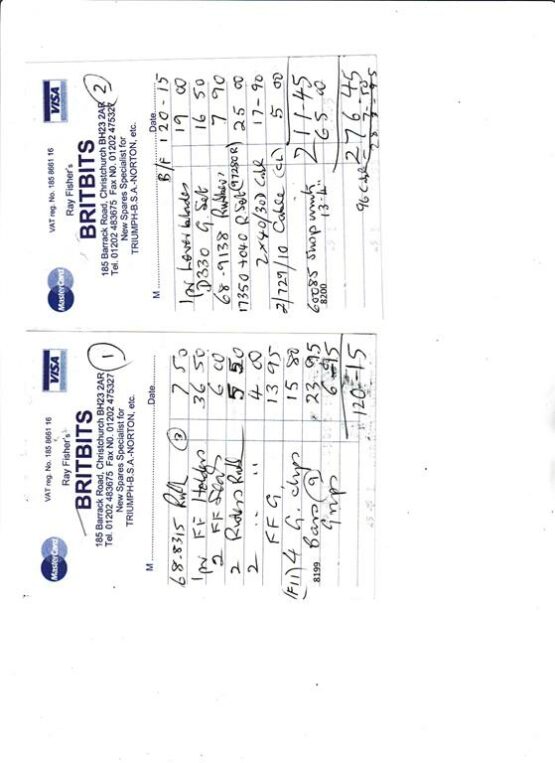 VAT reg. No. 185 8661 16
MasterCard
VISA
Ray Fisher's
BRITBITS
1
185 Barrack Road, Christchurch BH23 2AR
Tel. 01202 483675 Fax No. 01202 475327
New Spares Specialist for
TRIUMPH-B.S.A.-NORTON, etc.
M Date
68.8315 Rub 7 50
1pr FF Holders 36 50
2 FF 6 00
2 Riders Rub 5 50
2 " " 4 00
FF G 13 95
(F11) 4 G. Clips 15 80
Bars 23 95
8199 Grips 6-95
120-15
VAT reg. No. 185 8661 16
MasterCard
VISA
Ray Fisher's
BRITBITS
2
185 Barrack Road, Christchurch BH23 2AR
Tel. 01202 483675 Fax No. 01202 475327
New Spares Specialist for
TRIUMPH-B.S.A.-NORTON, etc.
M Date
B/F 120-15
1pr Lever blades 19 00
D330 G. Set 16 50
68-9138 7 90
17350 +040 R Set (97280R) 25 00
2x40/30 Cabl 17-90
2/729/10 Cable (CL) 5 00
211-45
60085 Shop 65.00
8200
276 45